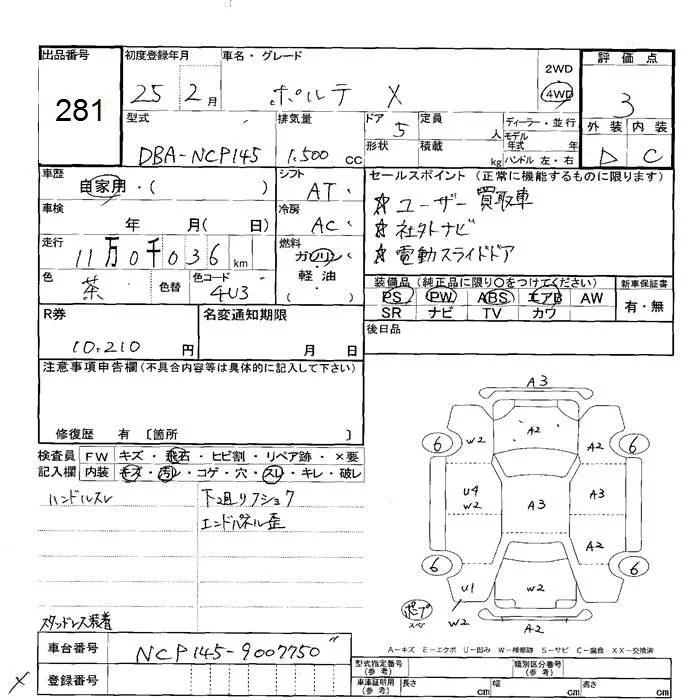 出品番号
281
初度登録年月
25 2月
車名・グレード
ポルテ X
2WD
4WD
評価点
3
外装 内装
D C
型式
DBA-NCP145
排気量
1.500 cc
ドア
5
形状
定員
人
積載
kg
ディーラー・並行
モデル
年式 年
ハンドル 左・右
車歴
自家用・( )
シフト
AT
車検
年 月( 日)
冷房
AC
走行
11万0千036km
燃料
ガソリン
軽・油
( )
色
茶
色替
色コード
4U3
セールスポイント (正常に機能するものに限ります)
☆ユーザー買取車
☆社外ナビ
☆電動スライドドア
装備品 (純正品に限り〇をつけてください)
PS PW ABS エアB AW
SR ナビ TV カワ
新車保証書
有・無
後日品
R券
10.210 円
名変通知期限
月 日
注意事項申告欄(不具合内容等は具体的に記入して下さい)
修復歴 有 〔箇所 〕
検査員
記入欄
FW キズ・飛石・ヒビ割・リペア跡・×要
内装 キズ・汚レ・コゲ・穴・スレ・キレ・破レ
ハンドルスレ
下廻リフショク
エンドパネル歪
スタッドレス装着
A3
6 W2 A2 6
U4
W2
A3
A3
A2
6 U1 W2 6
W2
A2
A-キズ E-エクボ U-凹み W-補修跡 S-サビ C-腐食 XX-交換済
車台番号
NCP145-9007750"
× 登録番号
型式指定番号
(参考)
類別区分番号
(参考)
車庫証明用
(参考)
長さ cm
幅 cm
高さ cm